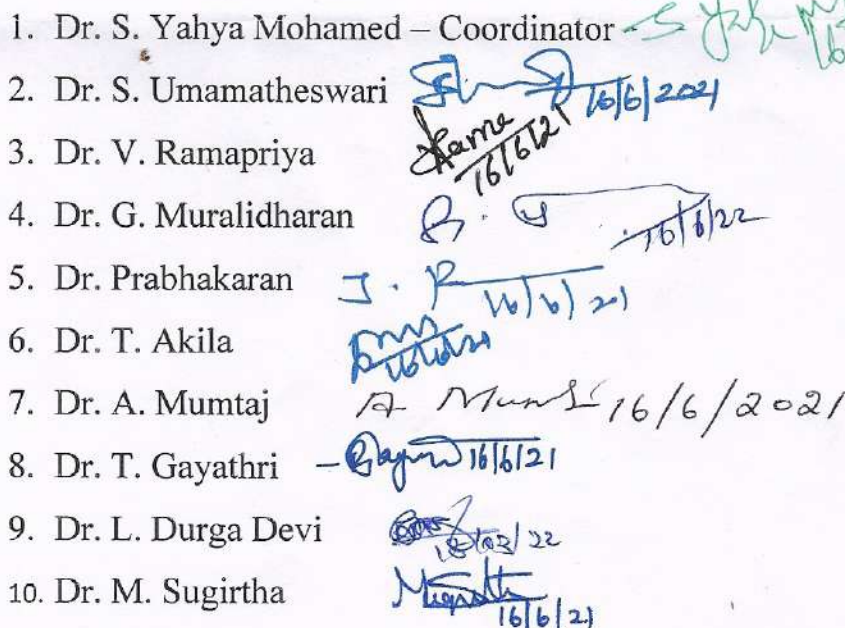 1. Dr. S. Yahya Mohamed – Coordinator - S Yahya
2. Dr. S. Umamatheswari 16/6/2021
3. Dr. V. Ramapriya Rama 16/6/21
4. Dr. G. Muralidharan 16/6/22
5. Dr. Prabhakaran J. P 16/6/21
6. Dr. T. Akila 16/6/21
7. Dr. A. Mumtaj A 16/6/2021
8. Dr. T. Gayathri – 16/6/21
9. Dr. L. Durga Devi /22
10. Dr. M. Sugirtha 16/6/21